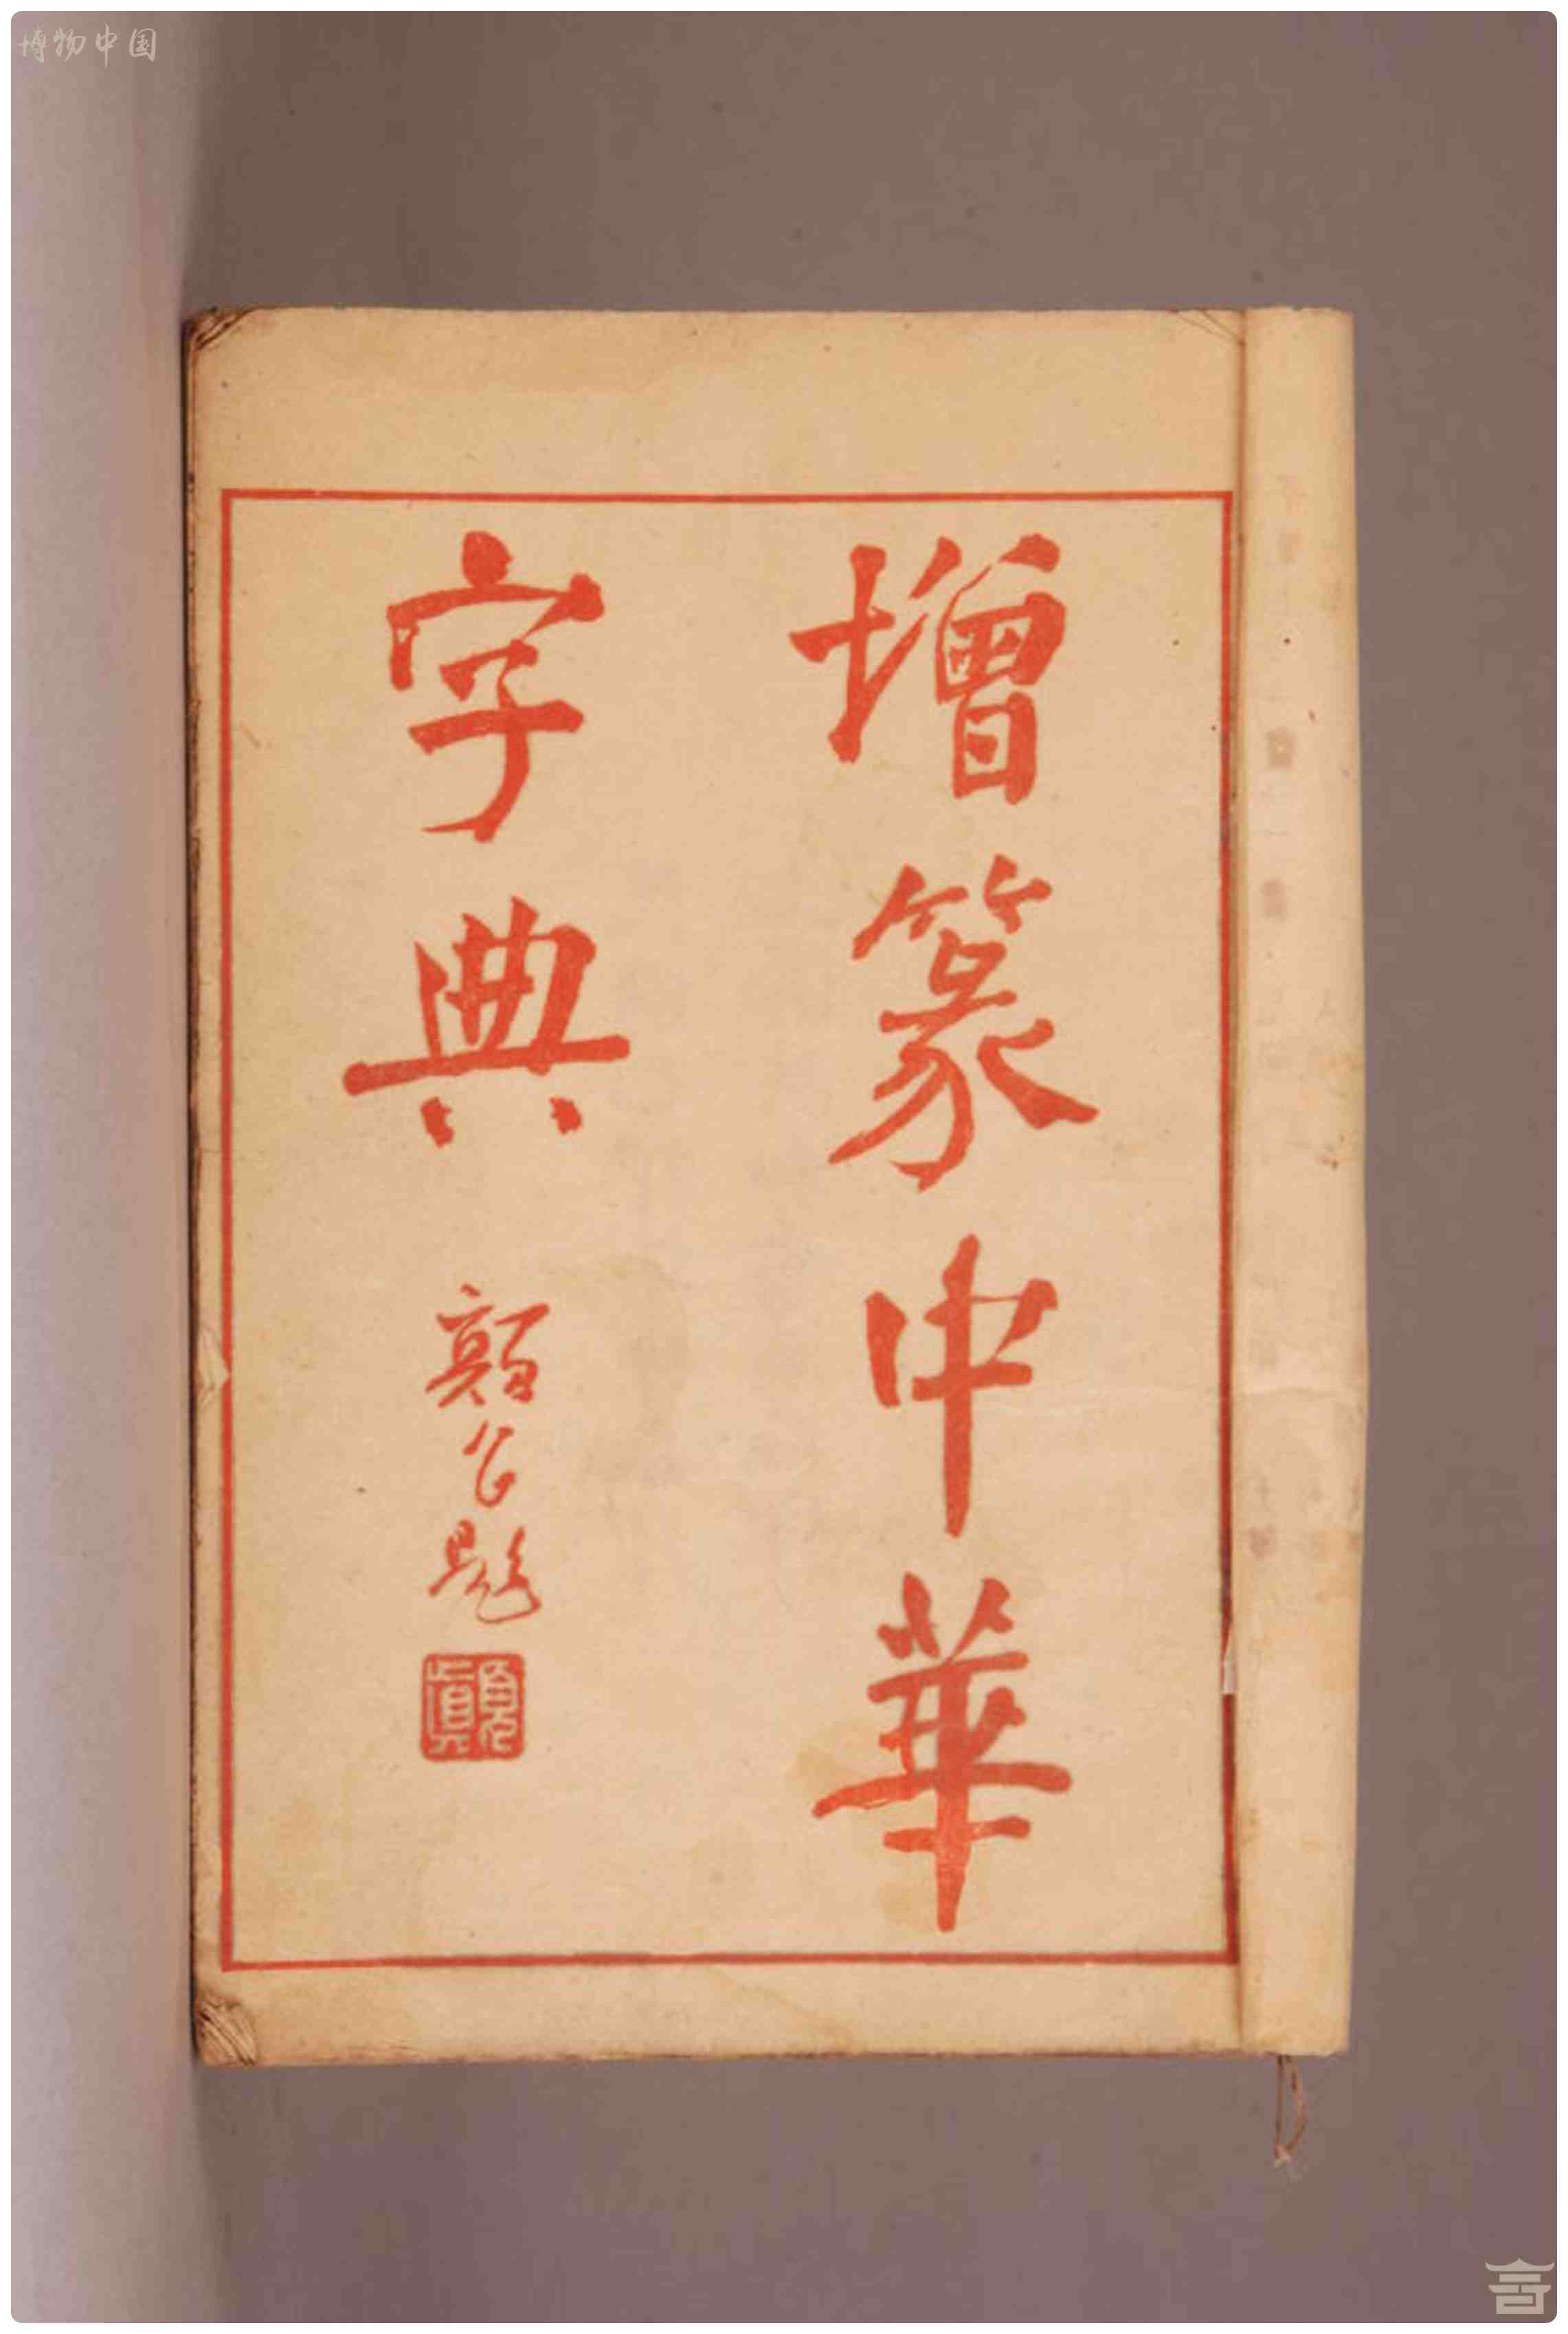 博物中国
增篆中華
字典
顛公題